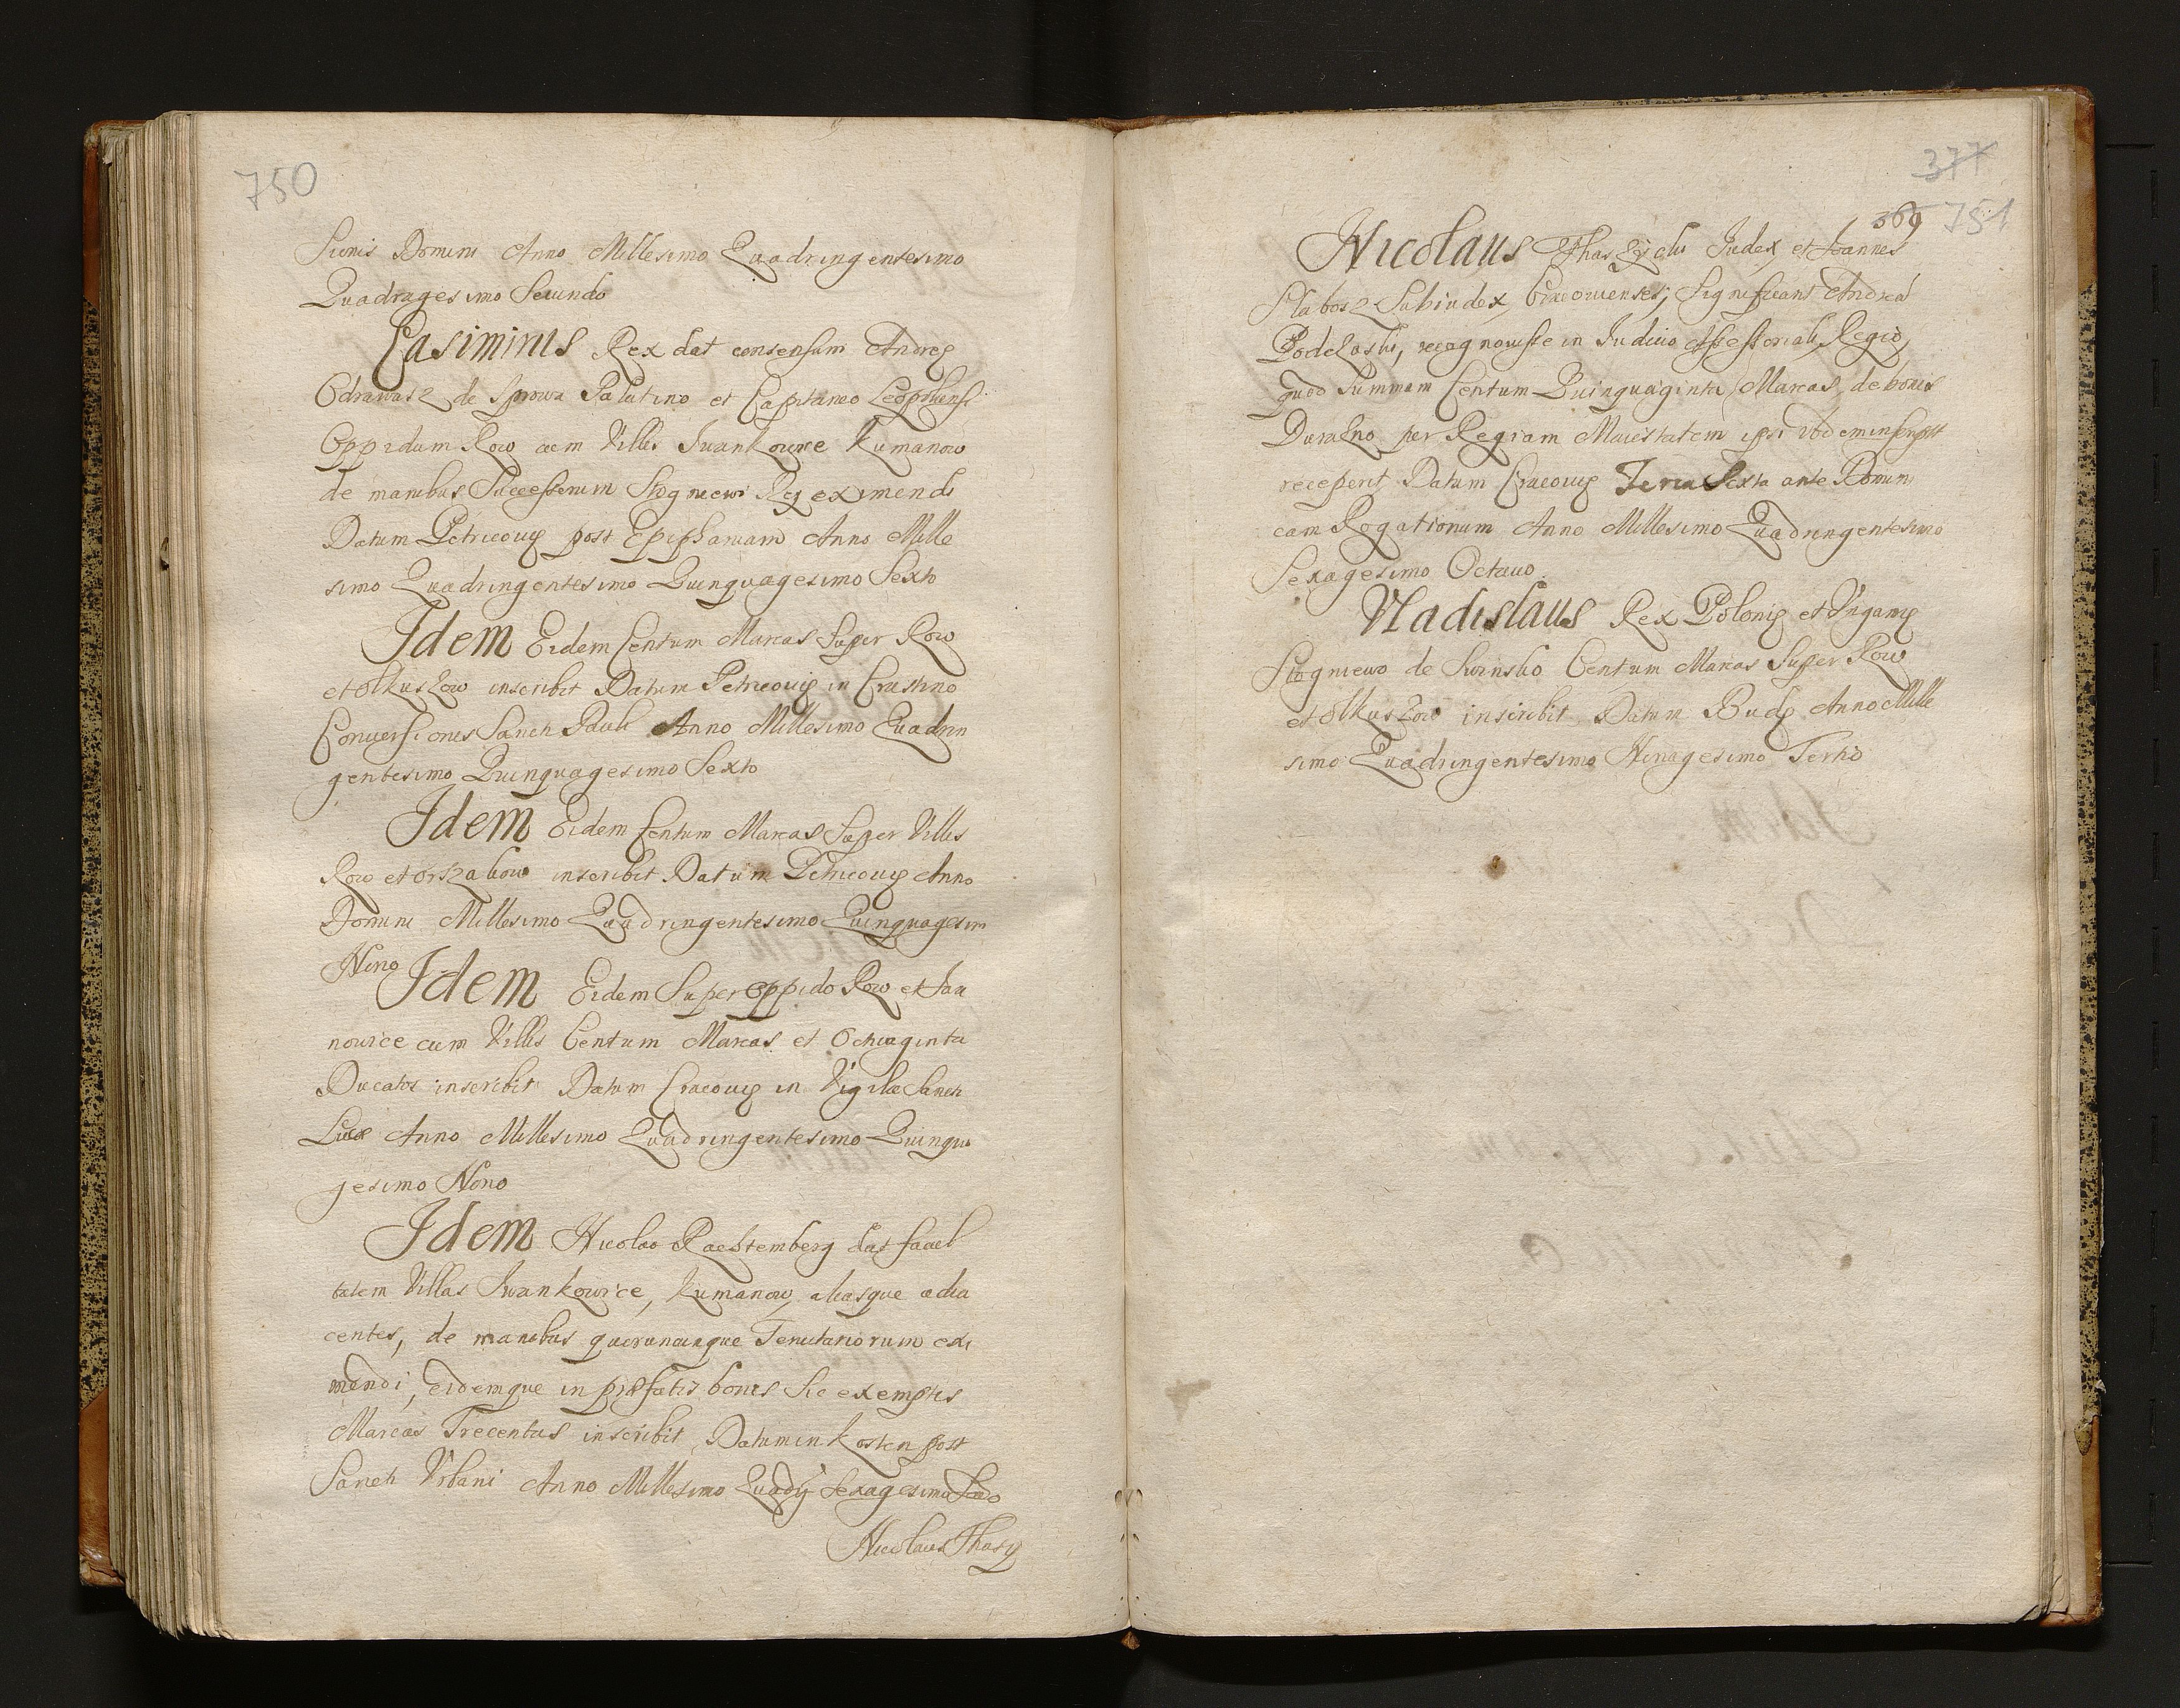 750
Sionis Domini Anno Millesimo Quadringentesimo
Quadragesimo Secundo
Casimirus Rex dat consensum Andreæ
Odrawasz de Sprowa Palatino et Capitaneo Leopoliensi
Oppidum Row cum Villis Iwankowce Kumanow
de manibus Successorum Stogniewi Rey eximendi
Datum Petricoviæ post Epiphaniam Anno Mille
simo Quadringentesimo Quinquagesimo Sexto
Idem Eidem Centum Marcas Super Row
et Olkuszow inscribit Datum Petricoviæ in Crastino
Conversionis Sancti Pauli Anno Millesimo Quadrin
gentesimo Quinquagesimo Sexto
Idem Eidem Centum Marcas Super Villis
Row et inscribit Datum Petricoviæ Anno
Domini Millesimo Quadringentesimo Quinquagesim
Nono
Idem Eidem Super oppido Row et Iva
nowice cum Villis Centum Marcas et Octuaginta
Ducatos inscribit Datum Cracoviæ in Vigilia Sancti
Lucæ Anno Millesimo Quadringentesimo Quinqua
gesimo Nono
Idem Nicolao Raestemberg dat facul
tatem Villas Iwankowice, Kumanow, aliasque adia
centes, de manibus quorumcunque Tenutariorum exi
mendi, eidemque in præfatis bonis sic exemptis
Marcas Trecentas inscribit, Datum in Kosten post
Sancti Urbani Anno Millesimo Quadrij Sexagesimo Scdo
Nicolaus Thasy
377
369 751
Nicolaus Thaszycki Iudex et Ioannes
Slabosz Subiudex Cracovienses, Significant Andreā
Podelaski, recognovisse in Iudicio Assessoriali Regio,
quod Summam Centum Quinquaginta Marcas, de bonis
per Regiam Maiestatem ipsi ibidem inscript
receperit, Datum Cracoviæ Feria Sexta ante Domini
cam Rogationum Anno Millesimo Quadringentesimo
Sexagesimo Octavo.
Vladislaus Rex Poloniæ et Vngariæ
Stogniewo de Centum Marcas Super Row
et Olkuszow inscribit Datum Budæ Anno Mille
simo Quadringentesimo Nonagesimo Tertio